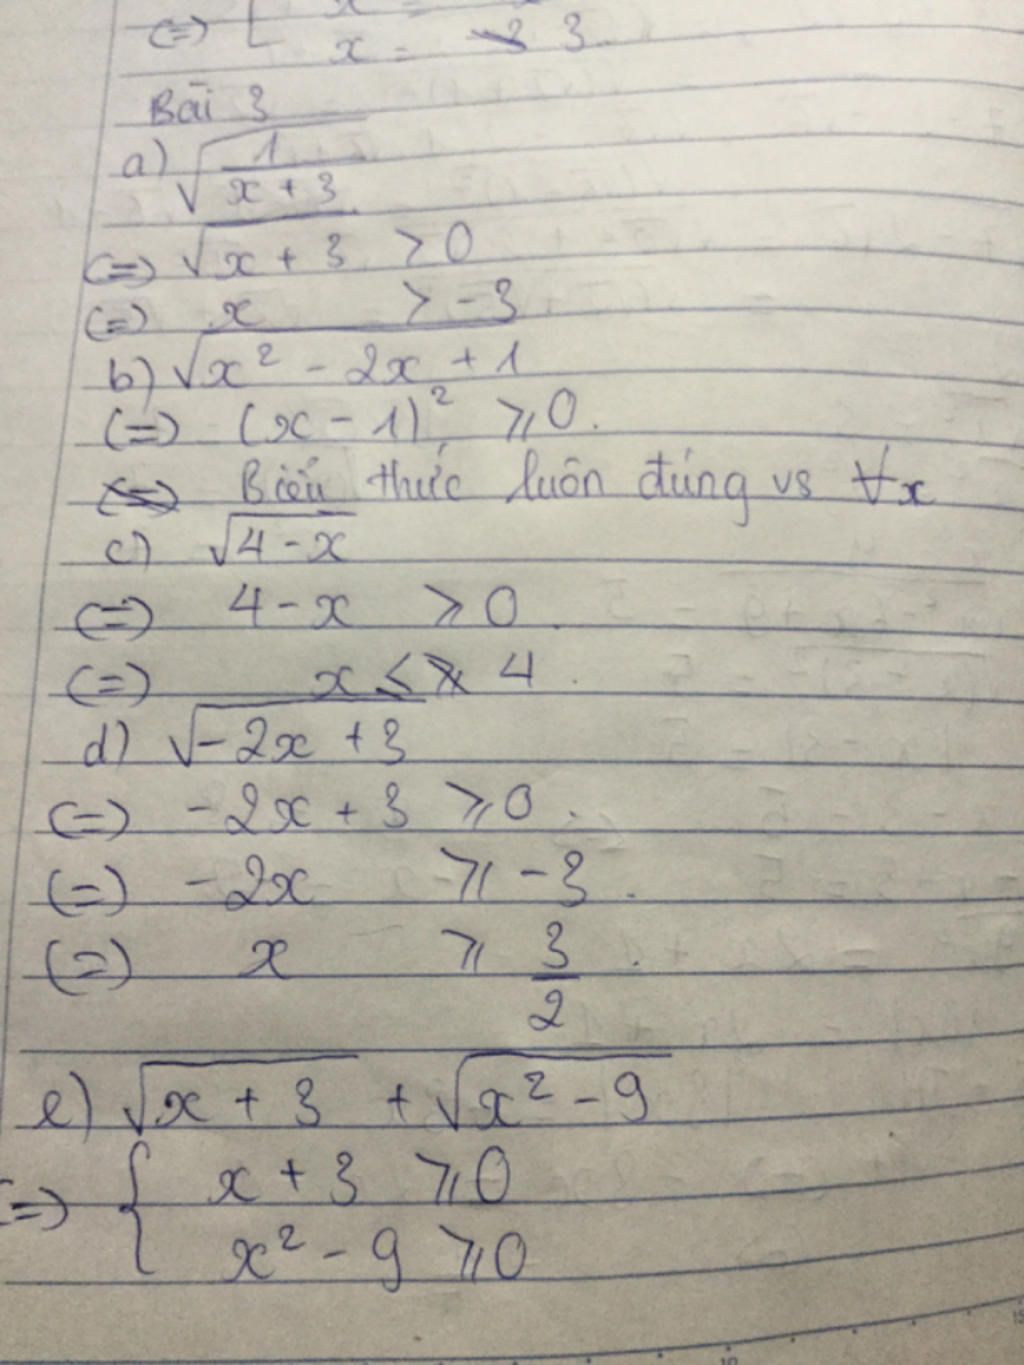 (=) x = 3
Bài 3
a) √(1/(x + 3))
(=) √(x + 3) > 0
(=) x > -3
b) √(x² - 2x + 1)
(=) (x - 1)² ⩾ 0.
Biểu thức luôn đúng vs ∀x
c) √(4 - x)
(=) 4 - x ⩾ 0.
(=) x ≤ 4.
d) √(-2x + 3)
(=) -2x + 3 ⩾ 0.
(=) -2x ⩾ -3.
(=) x ⩾ 3/2.
e) √(x + 3) + √(x² - 9)
(=) { x + 3 ⩾ 0
x² - 9 ⩾ 0
10
15